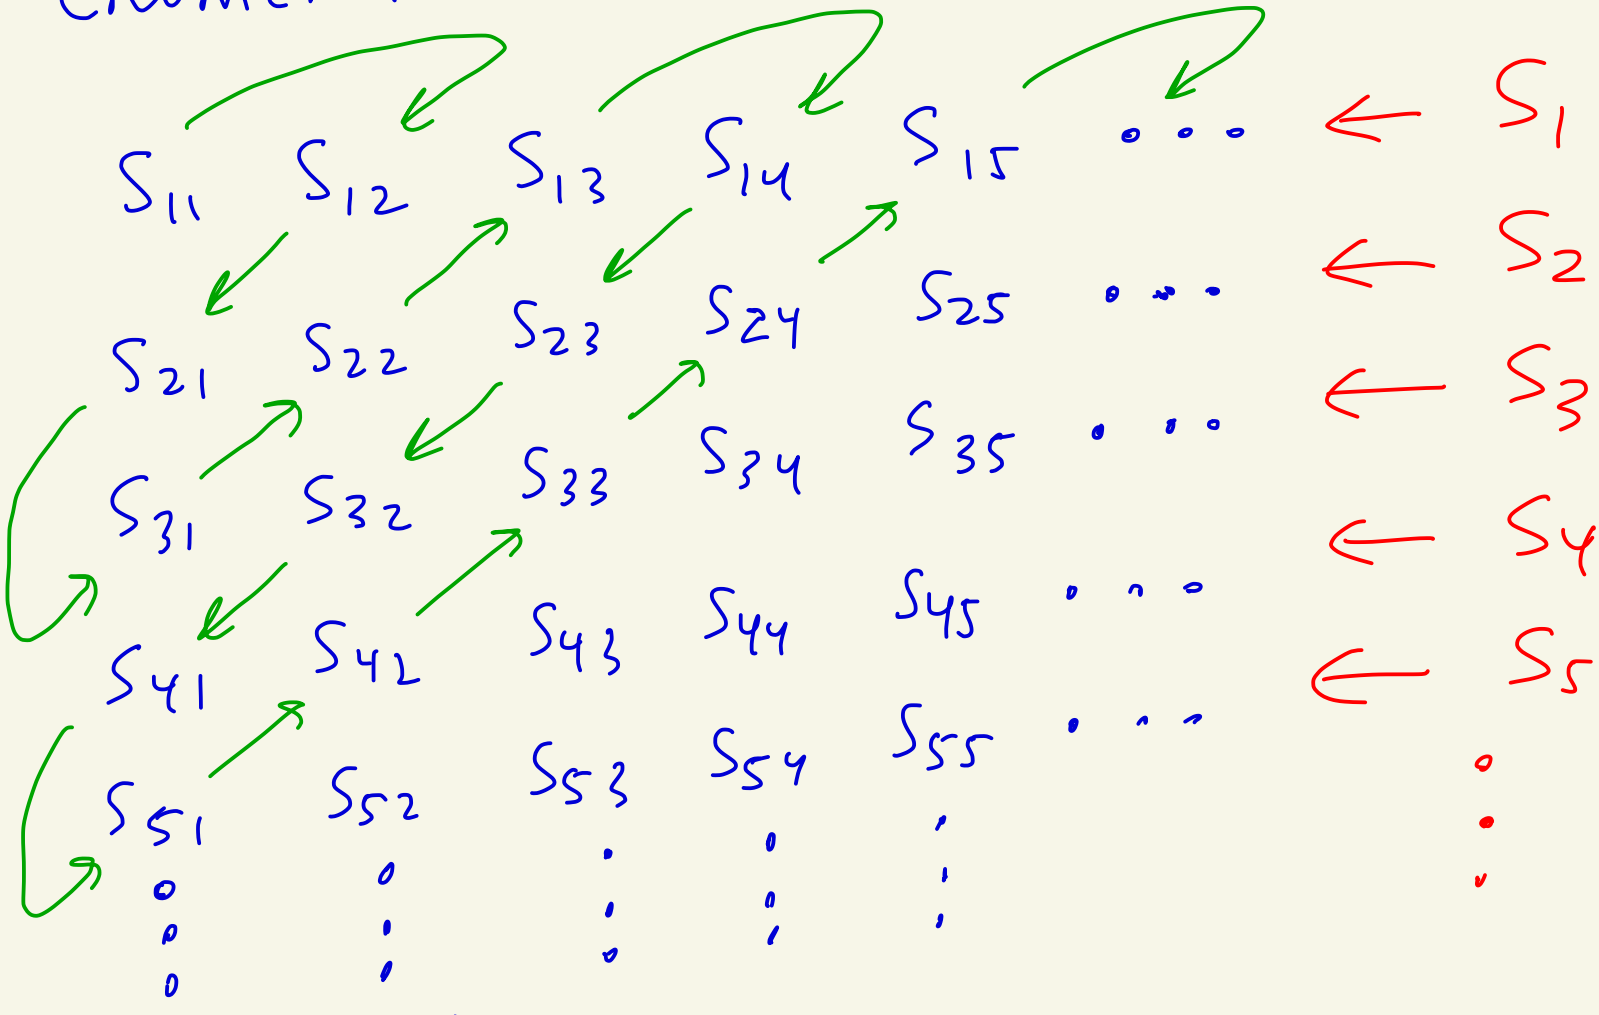 S11 S12 S13 S14 S15 ... ← S1
S21 S22 S23 S24 S25 ... ← S2
S31 S32 S33 S34 S35 ... ← S3
S41 S42 S43 S44 S45 ... ← S4
S51 S52 S53 S54 S55 ... ← S5